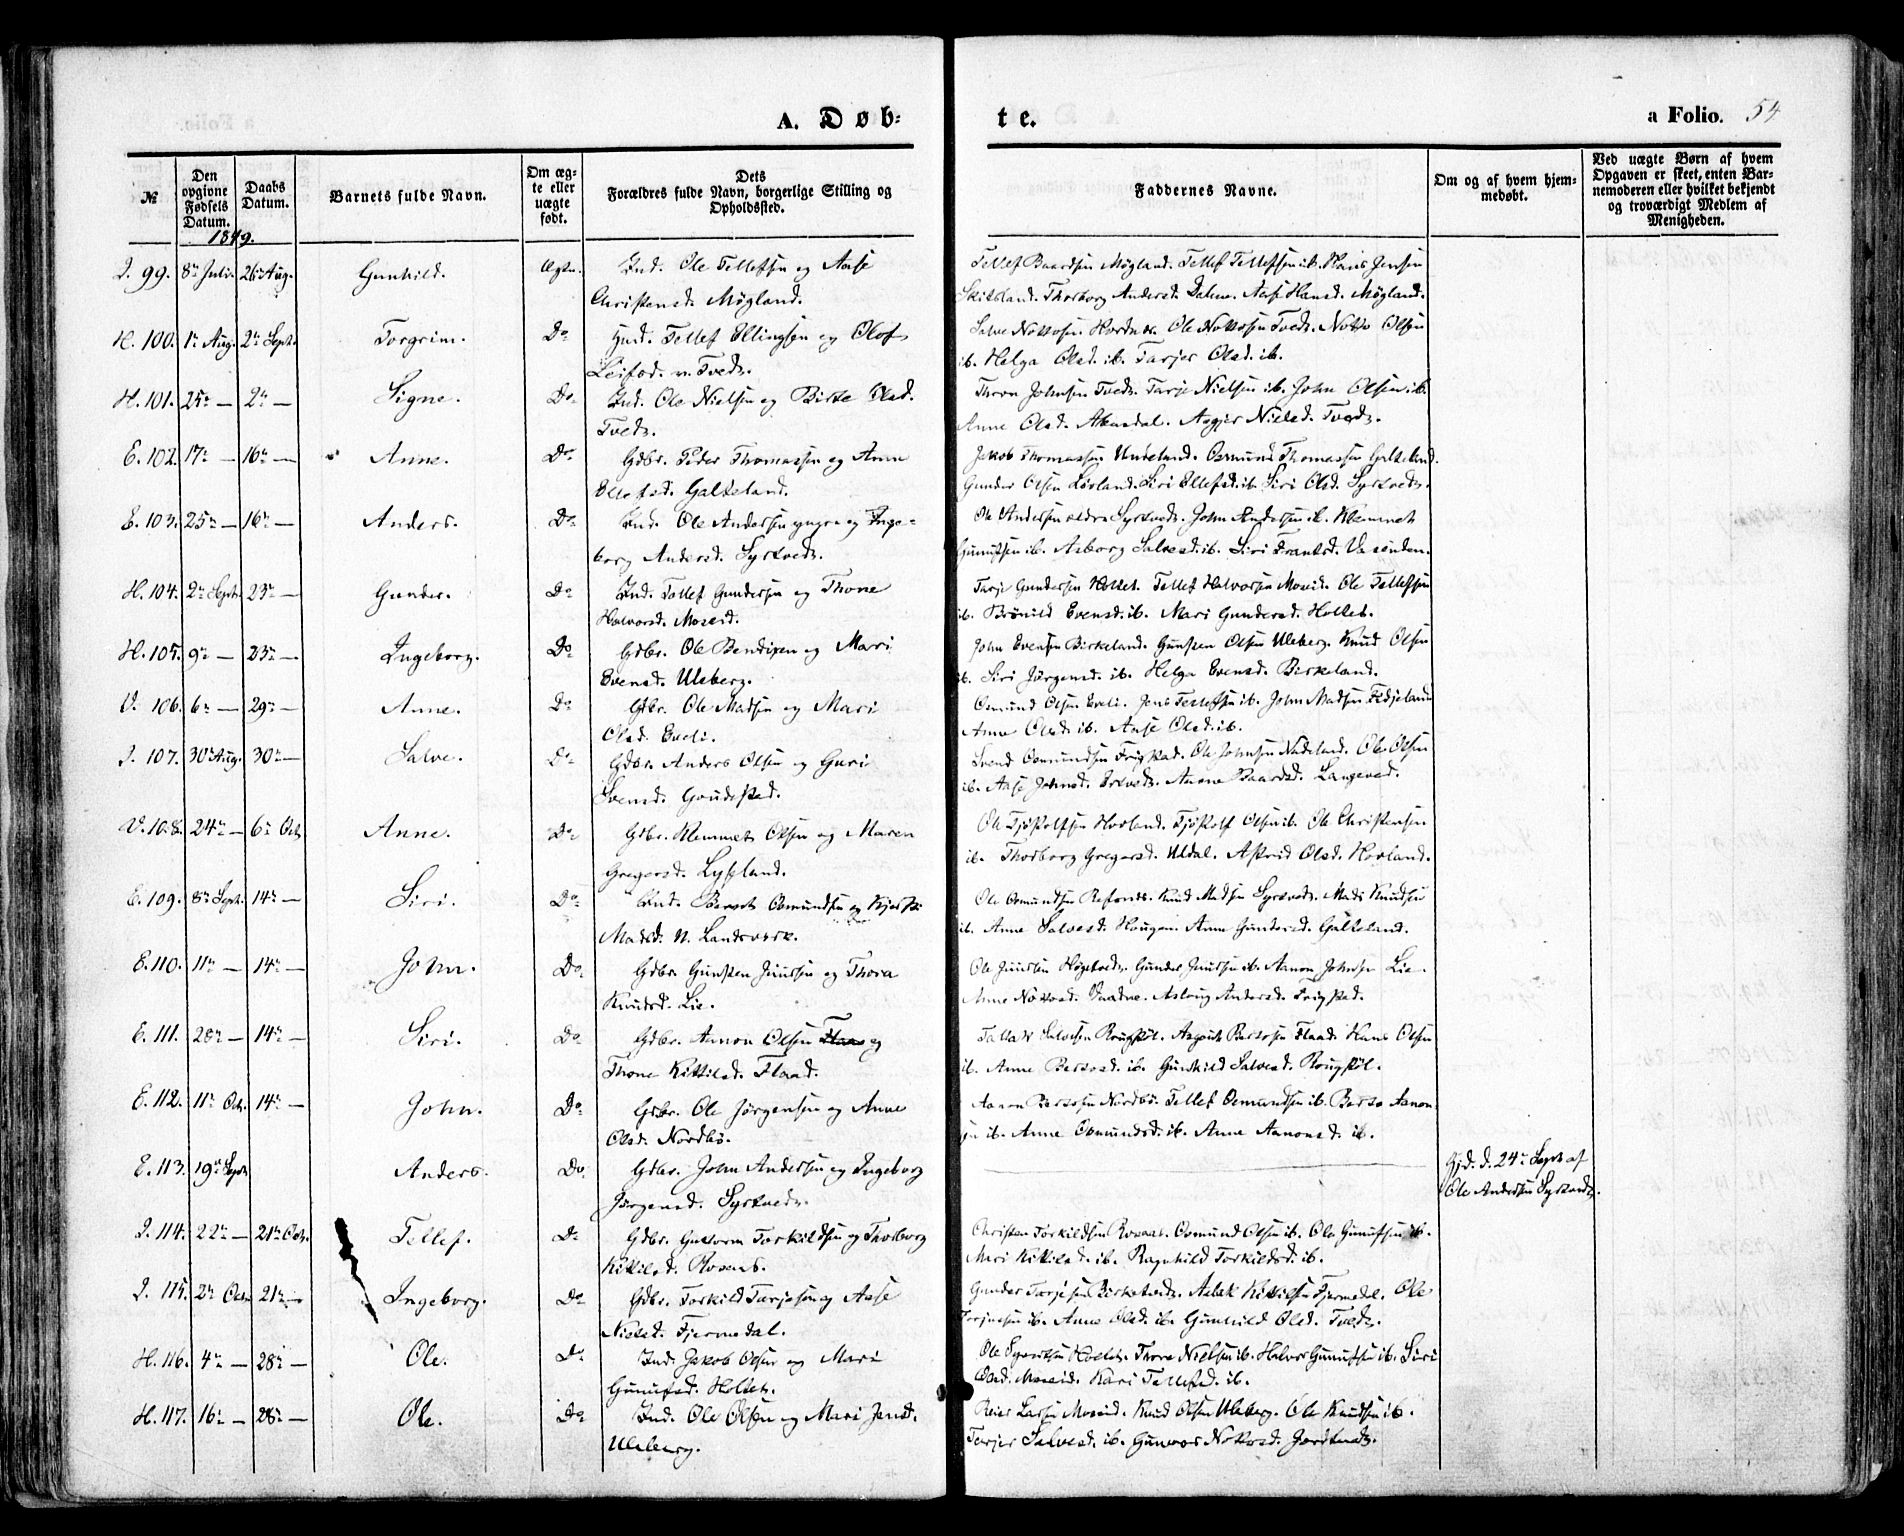 A. Døb-
te.
a Folio. 54
№
Den opgivne Fødsels Datum.
Daabs Datum.
Barnets fulde Navn.
Om ægte eller uægte født.
Dets Forældres fulde Navn, borgerlige Stilling og Opholdssted.
Faddernes Navne.
Om og af hvem hjemmedøbt.
Ved uægte Børn af hvem Opgaven er skeet, enten Barnemoderen eller hvilket bekjendt og troværdigt Medlem af Menigheden.
1849.
I. 99. 8de Juli. 26de Aug. Gunhild. Ægte. Ind. Ole Tellefsen og Aase
Christensd. Møgland.
Tellef Baardsen Møgland. Tellef Tellefsen ib. Hans Jensen
Thorborg Andersd. Dalen. Aase Hansd. Møgland.
H. 100. 1te Aug. 2den Sept. Torgrim. Do Tellef Ellingsen og Olof
Leifsd. n. Tved.
Salve Nottosen Ole Nottosen Tved. Notto Olsen
ib. Helga Olsd. ib. Tarjer Olsd. ib.
H. 101. 25de — 2den — Signe. Do Ind. Ole Nielsen og Birte Olsd.
Tved.
Thron Johnsen Tved. Tarje Nielsen ib. John Olsen ib.
Anne Olsd. Abusdal. Asgjer Nielsd. Tved.
E. 102. 17de — 16de — Anne. Do Gdbr. Peder Thomassen og Anne
Ellefsd. Galteland.
Jakob Thomassen Osmund Thomassen Galteland.
Gunder Olsen Løvland. Siri Ellefsd. ib. Siri Olsd. Syrtveds.
E. 103. 25de — 16de — Anders. Do Ind. Ole Andersen yngre og Inge-
borg Andersd. Syrtveds.
Ole Andersen ældre Syrtveds. John Andersen ib. Klemmet
Gunufsen ib. Asborg Salvesd. ib. Siri Frantsd.
H. 104. 2den Sept. 23de — Gunder. Do Ind. Tellef Gundersen og Thone
Halvorsd. Moseid.
Tarje Gundersen Holtet. Tellef Halvorsen Moseid. Ole Tellefsen
ib. Brønild Evensd. ib. Mari Gundersd. Holtet.
H. 105. 9de — 23de — Ingeborg. Do Gdbr. Ole Bendixen og Mari
Evensd. Uleberg.
John Evensen Birkeland. Gunsten Olsen Uleberg. Knud Olsen
ib. Siri Jørgensd. ib. Helga Evensd. Birkeland.
V. 106. 6te — 29de — Anne. Do Gdbr. Ole Madsen og Mari
Olsd. Eveli.
Osmund Olsen Eveli. Jens Tellefsen ib. John Madsen
Anne Olsd. ib. Aase Olsd. ib.
I. 107. 30te Aug. 30te — Salve. Do Gdbr. Anders Olsen og Guri
Svensd.
Svend Osmundsen Frigstad. Ole Johnsen Ole Olsen
ib. Aase Johnsd. Anne Baardsd.
V. 108. 24de — 6te Oct. Anne. Do Gdbr. Klemmet Olsen og Maren
Gregersd. Lysland.
Ole Tjøstolfsen Hovland. Tjøstolf Olsen ib. Ole Christensen
ib. Thorborg Gregersd. Uldal. Astrid Olsd. Hovland.
E. 109. 8de Sept. 14de — Siri. Do Ind. Osmundsen og
Madsd. N. Landsverk.
Ole Osmundsen Knud Madsen Syrtveds. Mads Knudsen
ib. Anne Salvesd. Haugen. Anne Gundersd. Galteland.
E. 110. 11te — 14de — John. Do Gdbr. Gunsten Juulsen og Thora
Knudsd. Lie.
Ole Juulsen Høgetveds. Gunder Juulsen ib. Aanon Johnsen Lie.
Anne Nottosd. Aslaug Andersd. Frigstad.
E. 111. 28de — 14de — Siri. Do Gdbr. Aanon Olsen og
Thone Kittilsd. Flaad.
Salvesen Rougstøl. Flaad. Hans Olsen
ib. Anne Bersvsd. ib. Gunhild Salvesd. Rougstøl.
E. 112. 11te Oct. 14de — John. Do Gdbr. Ole Jørgensen og Anne
Olsd. Nordbø.
Aanon Nordbø. Tellef Osmundsen ib. Aanon-
sen ib. Anne Osmundsd. ib. Anne Aanonsd. ib.
E. 113. 19de Sept. Anders. Do Gdbr. John Andersen og Ingeborg
Jørgensd. Syrtveds.
Hjd. d. 24de Sept. af
Ole Andersen Syrtveds.
I. 114. 22de — 21de Oct. Tellef. Do Gdbr. Guttorm Torkildsen og Thorborg
Kittilsd. Rosaas.
Christen Torkildsen Rosaas. Osmund Olsen ib. Ole Gunufsen ib.
Mari Kittilsd. ib. Ragnhild Torkildsd. ib.
I. 115. 2den Oct. 21de — Ingeborg. Do Gdbr. Torkild Tarjesen og Aase
Nielsd. Fjermedal.
Gunder Tarjesen Birketveds. Aslak Kittilsen Fjermedal. Ole
Torjussen ib. Anne Olsd. ib. Gunhild Olsd. Tveds.
H. 116. 4de — 28de — Ole. Do Ind. Jakob Olsen og Mari
Gunufsd. Holtet.
Ole Holtet. Thore Nielsen ib. Halvor Gunufsen ib. Siri
Olsd. Moseid. Kari Tellefsd. ib.
H. 117. 16de — 28de — Ole. Do Ind. Ole Olsen og Mari Jensd.
Uleberg.
Reier Larsen Moseid. Knud Olsen Uleberg. Ole Knudsen ib.
Tarjer Salvesd. ib. Gunvor Nottosd.